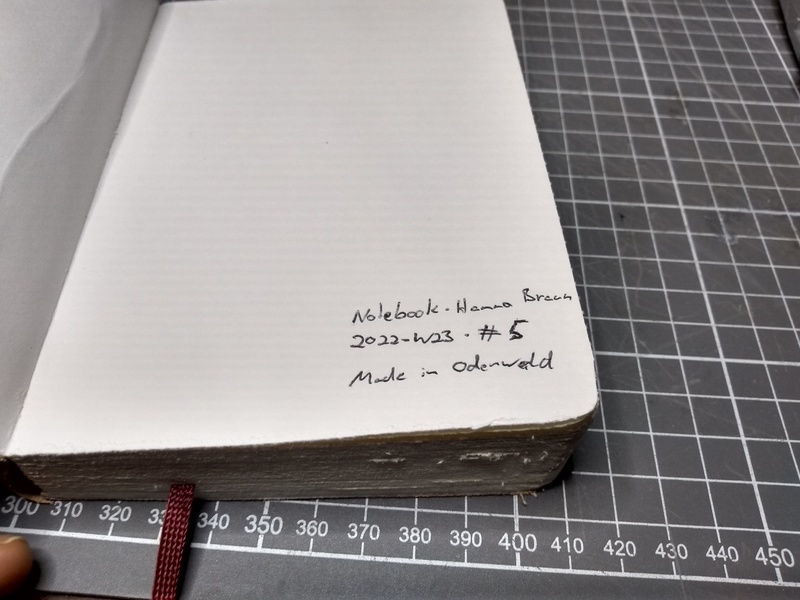 Notebook - Hanna Braun
2022-W23 - #5
Made in Odenwald
300 310 320 33 340 350 360 370 380 390 400 410 420 430 440 450